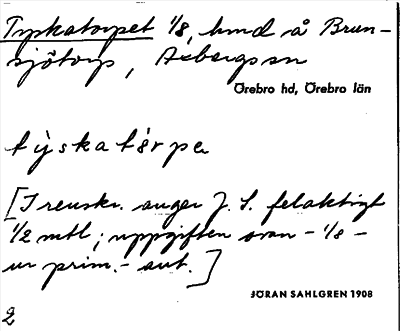 Tyskatorpet 1/8, hmd å Brun-
sjötorp, Axbergs sn
Örebro hd, Örebro län
tỳskatơrpe
[I renskr. anger J. S. felaktigt
1/2 mtl; uppgiften ovan - 1/8 -
ur prim.-ant.]
JÖRAN SAHLGREN 1908
2